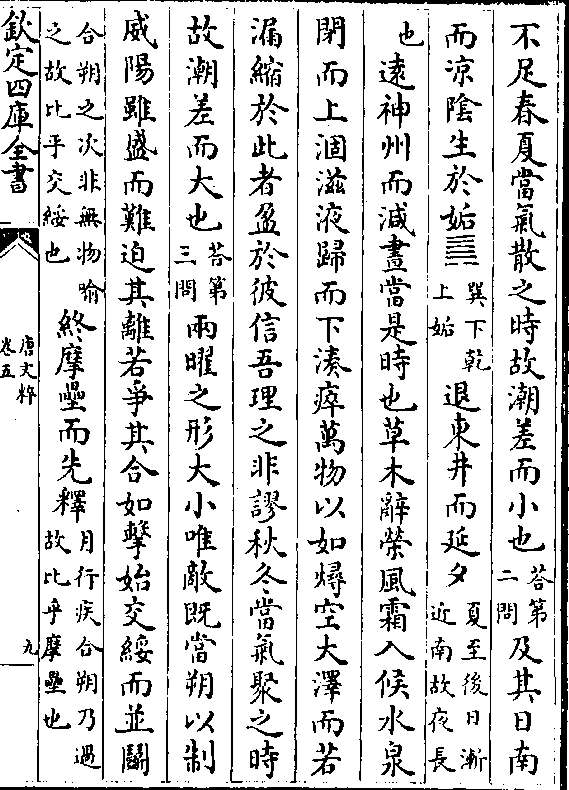 不足春夏當氣散之時故潮差而小也答第二問及其日南
而涼陰生於姤䷫巽下乾上姤退東井而延夕夏至後日漸近南故夜長
也逺神州而減晝當是時也草木辭榮風霜入候水泉
閉而上涸滋液歸而下湊瘁萬物以如燖空大澤而若
漏縮於此者盈於彼信吾理之非謬秋冬當氣聚之時
故潮差而大也答第三問兩曜之形大小唯敵既當朔以制
威陽雖盛而難迫其離若爭其合如擊始交綏而並鬬
合朔之次非無物喻之故比乎交綏也終摩壘而先釋月行疾合朔乃過故比乎摩壘也
欽定四庫全書
唐文粹
卷五
九